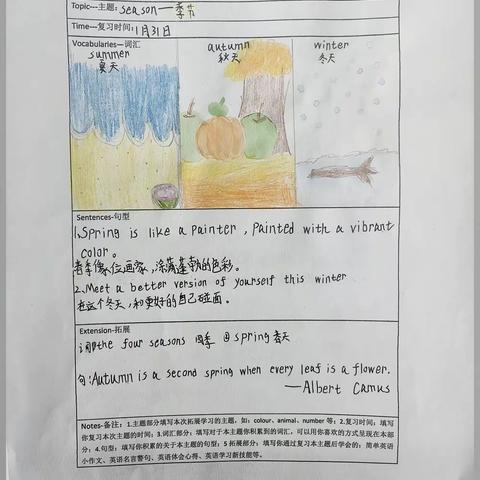 Topic---主题: season—季节
Time---复习时间: 1月31日
Vocabularies—词汇
summer
夏天
autumn
秋天
winter
冬天
Sentences-句型
1.Spring is like a painter, painted with a vibrant
color。
春季像位画家,涂满蓬勃的色彩。
2.Meet a better version of yourself this winter
在这个冬天,和更好的自己碰面。
Extension-拓展
词:①the four seasons 四季 ②spring 春天
句:Autumn is a second spring when every leaf is a flower.
—Albert Camus
Notes-备注：1.主题部分填写本次拓展学习的主题，如：colour、animal、number 等；2.复习时间：填写
你复习本次主题的时间；3.词汇部分：填写对于本主题你积累到的词汇，可以用你喜欢的方式呈现在本部
分；4.句型：填写你积累的关于本主题的句型；5 拓展部分：填写你通过复习本主题后学会的：简单英语
小作文、英语名言警句、英语体会心得、英语学习新技能等。